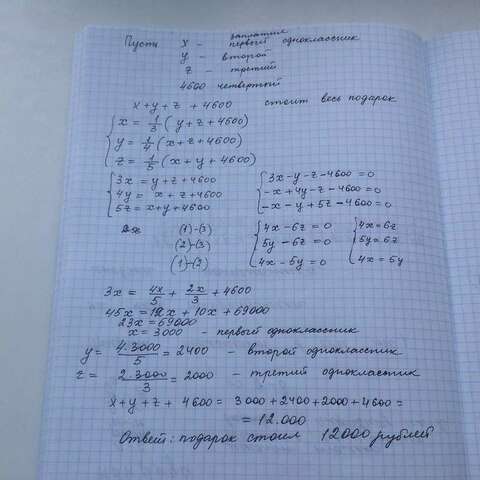 заплатил
Пусть x - первый одноклассник
y - второй
z - третий
4600 четвертый
x+y+z+4600 стоит весь подарок
x = 1/3 (y+z+4600)
y = 1/4 (x+z+4600)
z = 1/5 (x+y+4600)
3x = y+z+4600 3x-y-z-4600=0
4y = x+z+4600 -x+4y-z-4600=0
5z = x+y+4600 -x-y+5z-4600=0
(1)-(3) 4x-6z=0 4x=6z
(2)-(3) 5y-6z=0 5y=6z
(1)-(2) 4x-5y=0 4x=5y
3x = 4x/5 + 2x/3 + 4600
45x = 12x + 10x + 69000
23x = 69000
x = 3000 - первый одноклассник
y = 4·3000/5 = 2400 - второй одноклассник
z = 2·3000/3 = 2000 - третий одноклассник
x+y+z+4600 = 3000+2400+2000+4600 =
= 12.000
Ответ: подарок стоил 12000 рублей